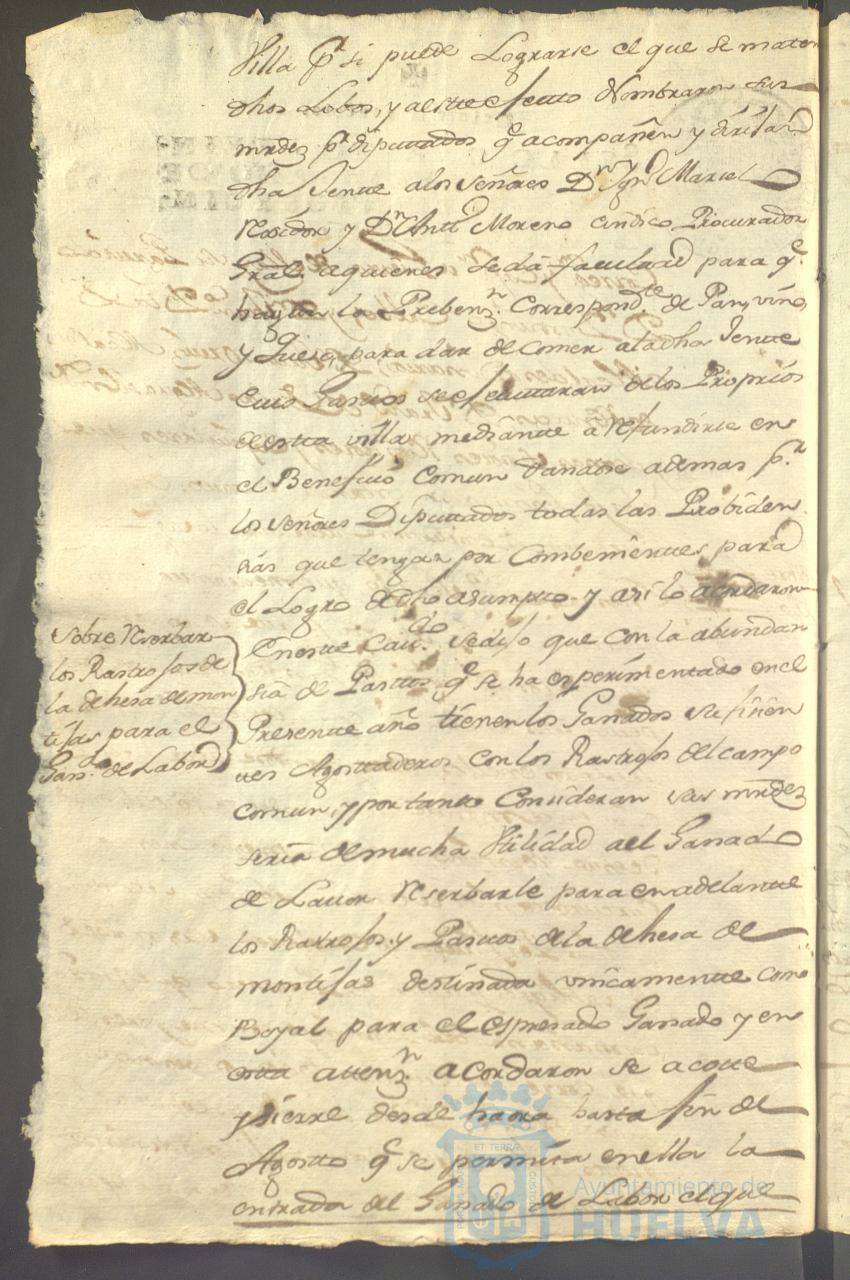 Villa pr. si puede Lograrse el que se maten
dhos Lobos, y a este efecto Nombraron sus
mrdez pr. diputados qe. acompañen y dirijan
dha Jente a los señores Dn. Ygno. Marcel
Rexidor y Dn. Antto. Moreno cindico Procurador
Gral. a quienes se dá facultad para qe.
hagan la Prebenzn. Correspondte. de Pan, vino,
y Queso, para dar de comer a la dha Jente
Cuios Gastos se efectuaran de los Proprios
de esta villa mediante a Refundirse en
el Beneficio Comun dandose ademas pr.
los señores Diputtados todas las Probiden
zias que tengan por Combenientes para
el Logro de dho asumpto y asi lo acordaron
sobre Reserbar
los Rastrojos de
la dehesa de mon
tijas para el
Ganado. de Labor
En este Cavdo. se dijo que con la abundan
sia de Pasttos qe. se ha esperimentado en el
Presente año tienen los Ganados sufisien
tes Agosttaderos con los Rastrojos del campo
comun, y por tanto Consideran sus mrdez
seria de mucha Utilidad a el Ganado
de Lavor Reserbarle para en adelante
los Rastrojos y Pastos de la dehesa de
montijas destinada unicamente como
Boyal para el espresado Ganado y en
esta attenzn. acordaron se acotte
y sierre desde haora hasta fin de
Agostto qe. se permita en ella la
entrada del Ganado de Labor el que
Ayuntamiento de
HUELVA